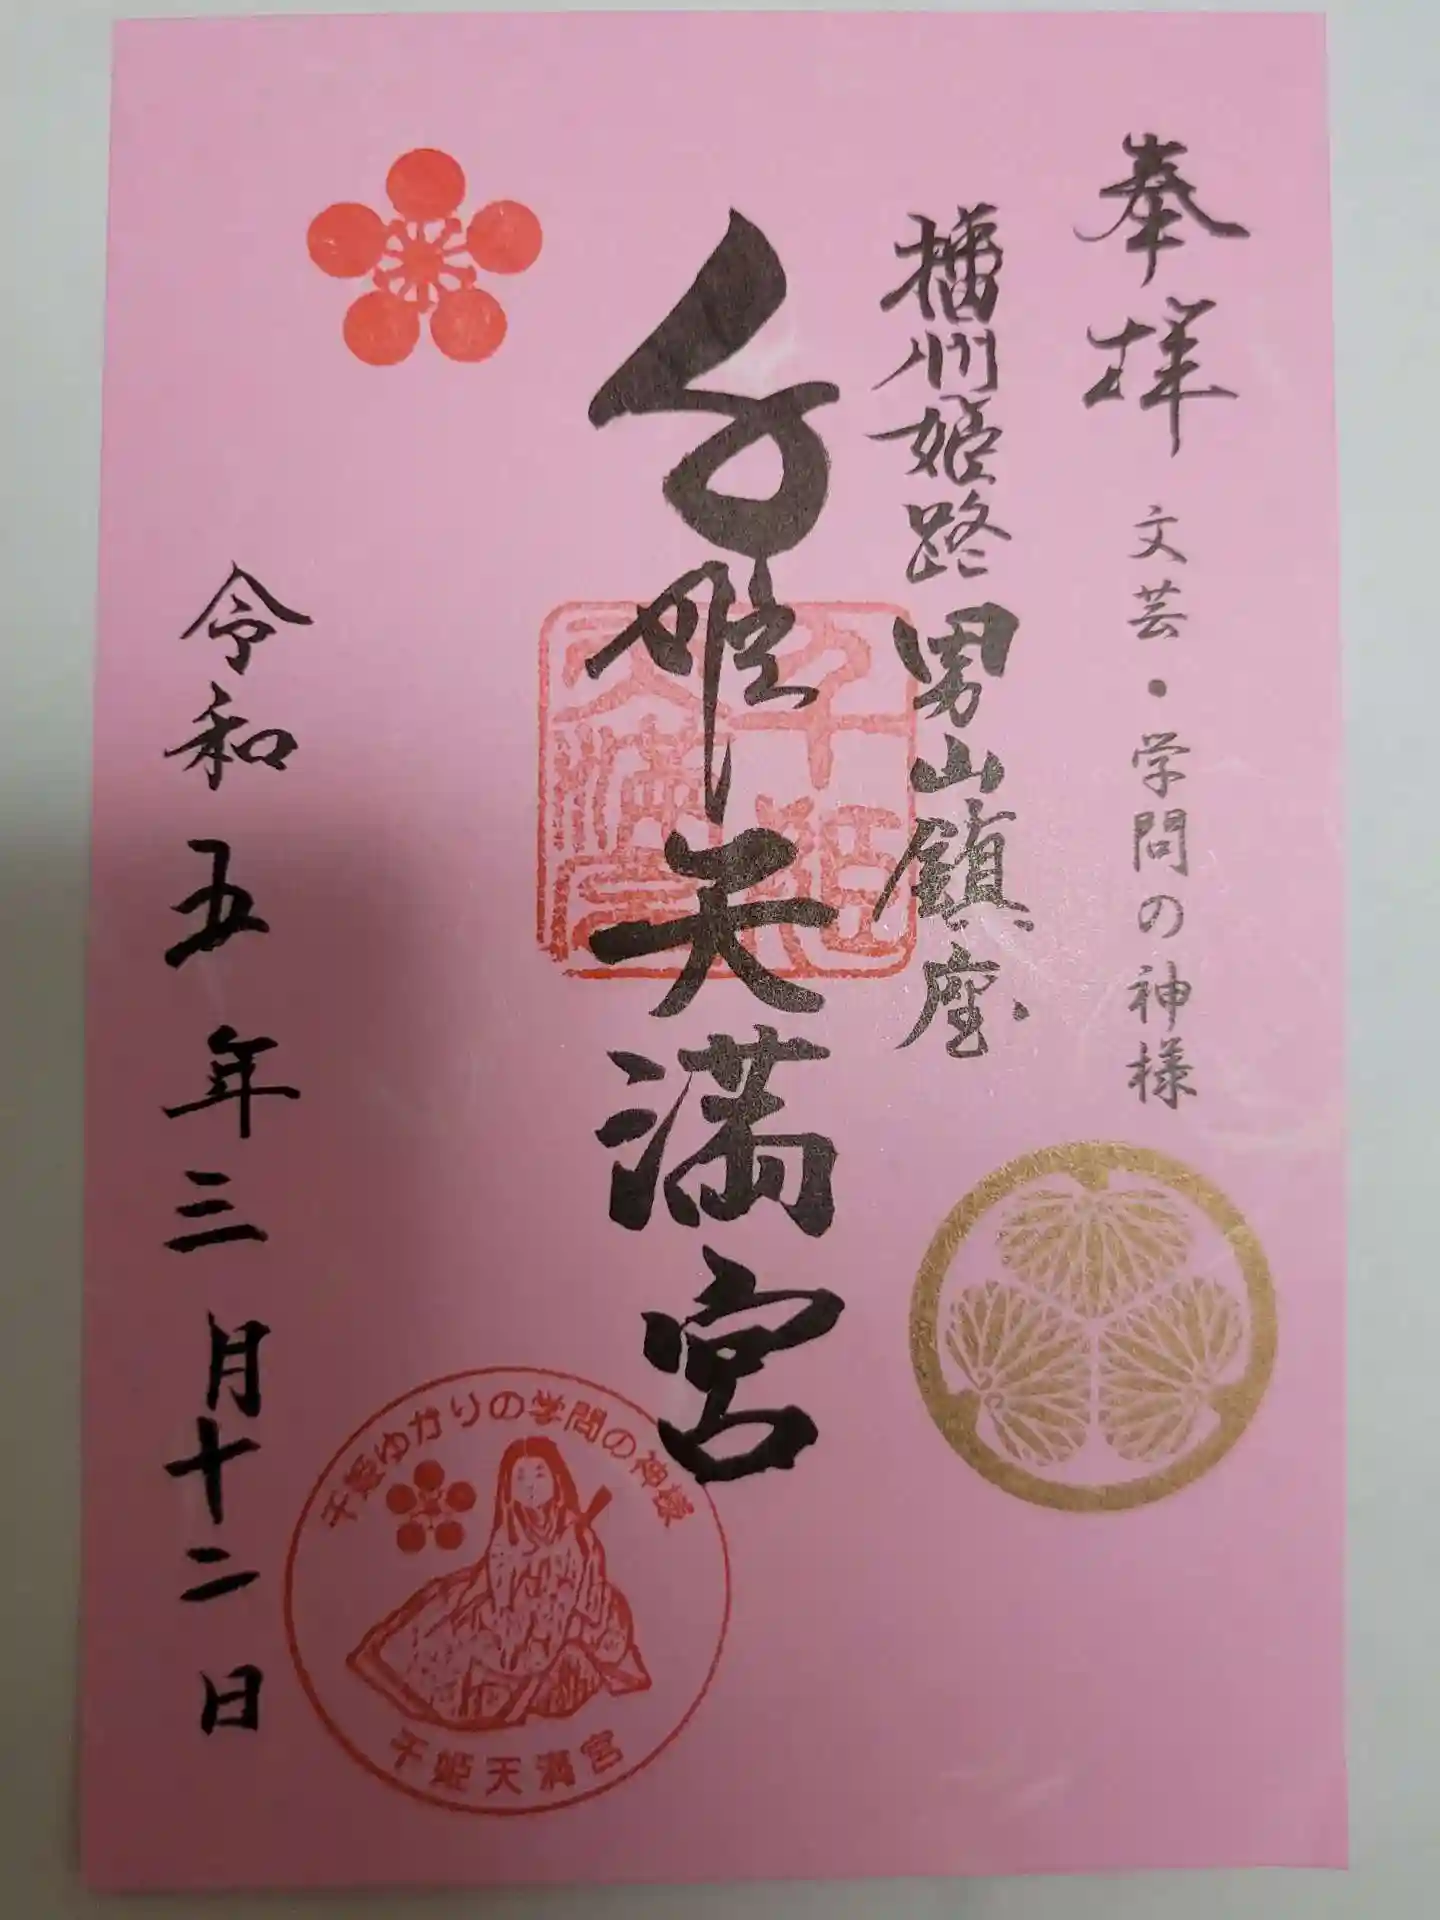 奉拝
文芸・学問の神様
播州姫路男山鎮座
千姫天満宮
千姫天満宮
千姫ゆかりの学問の神様
千姫天満宮
令和五年三月十二日